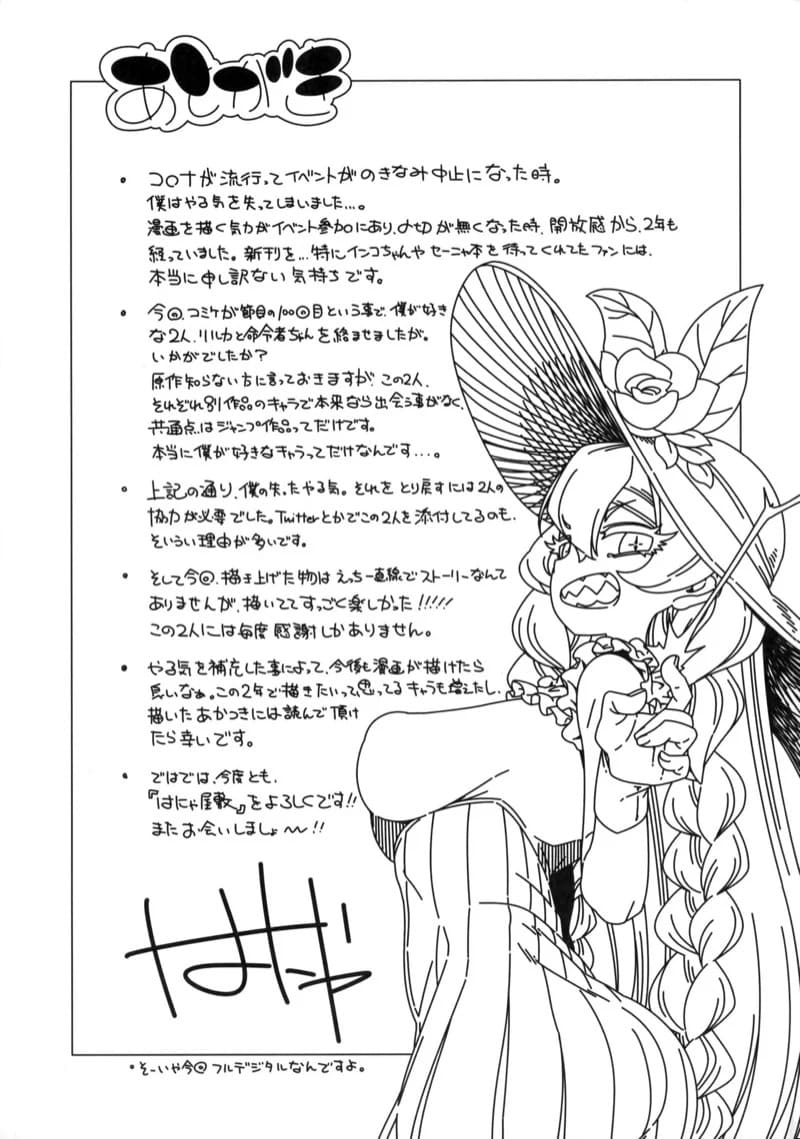 あとがき
・コロナが流行ってイベントがのきなみ中止になった時。
僕はやる気を失ってしまいました…。
漫画を描く気力がイベント参加にあり、〆切が無くなった時、開放感から、2年も
経っていました。新刊を…特にインコちゃんやセーニャ本を待ってくれてたファンには、
本当に申し訳ない気持ちです。
・今回、コミケが節目の100回目という事で、僕が好き
な2人、リルカと命令者ちゃんを絡ませましたが。
いかがでしたか？
原作知らない方に言っておきますが、この2人、
それぞれ別作品のキャラで本来なら出会う事がなく、
共通点はジャンプ作品ってだけです。
本当に僕が好きなキャラってだけなんです…。
・上記の通り、僕の失ったやる気。それをとり戻すには2人の
協力が必要でした。Twitterとかでこの2人を添付してるのも、
そういう理由が多いです。
・そして今回、描き上げた物はえっち一直線でストーリーなんて
ありませんが、描いててすっごく楽しかった!!!!!
この2人には毎度感謝しかありません。
・やる気を補充した事によって、今後も漫画が描けたら
良いなぁ。この2年で描きたいって思ってるキャラも増えたし、
描いたあかつきには読んで頂け
たら幸いです。
・ではでは、今度とも、
『はにゃ屋敷』をよろしくです!!
またお会いしましょ〜!!
はにゃ
・そーいや今回フルデジタルなんですよ。